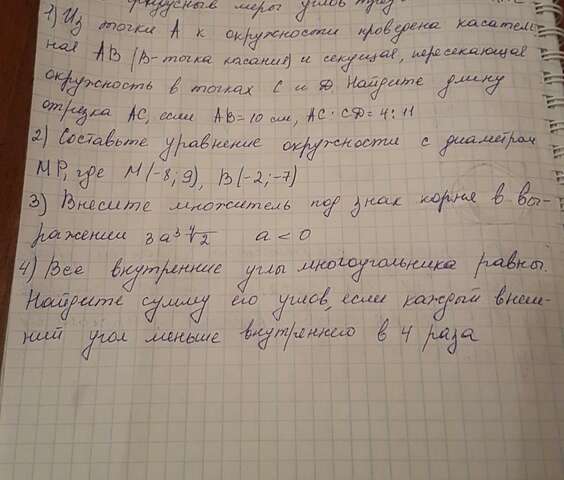 меры углов
1) Из точки А к окружности проверена касатель-
ная АВ (В-точка касания) и секущая, пересекающая
окружность в точках С и D. Найдите длину
отрезка АС, если АВ=10 см, АС:СD=4:11
2) Составьте уравнение окружности с диаметром
МР, где М(-8;9), В(-2;-7)
3) Внесите множитель под знак корня в вы-
ражении 3a³∜2 a<0
4) Все внутренние углы многоугольника равны.
Найдите сумму его углов, если каждый внеш-
ний угол меньше внутреннего в 4 раза